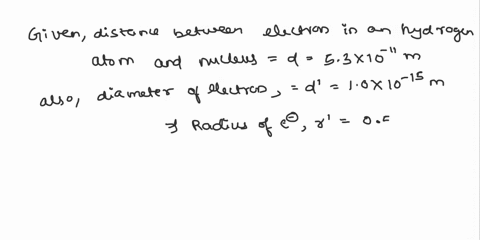 Given, distance between electron in an hydrogen
atom and nucleus = d = 5.3×10⁻¹¹ m
also, diameter of electron, = d' = 1.0×10⁻¹⁵ m
⇒ Radius of e⊖, r' = 0.